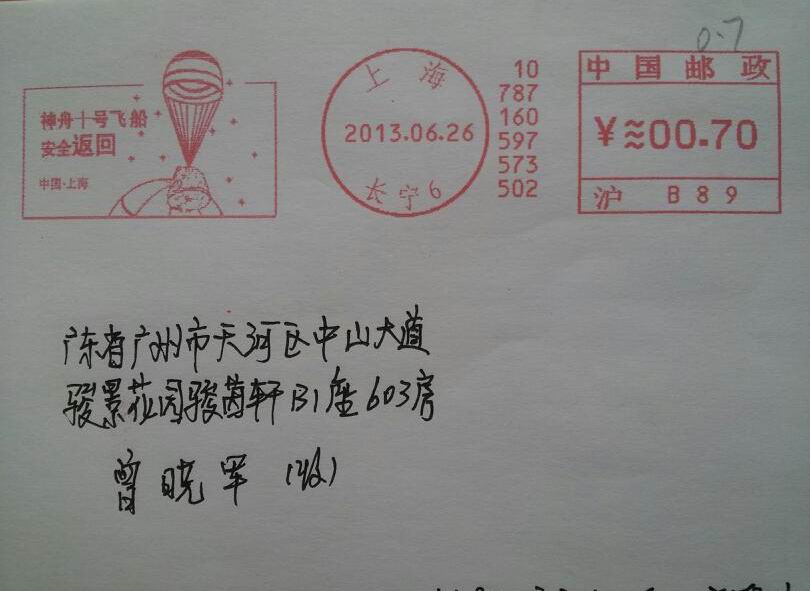 0.7
神舟十号飞船
安全返回
中国·上海
上海
2013.06.26
长宁6
10
787
160
597
573
502
中国邮政
¥≈00.70
沪 B89
广东省广州市天河区中山大道
骏景花园骏茵轩B1座603房
曾晓军(收)